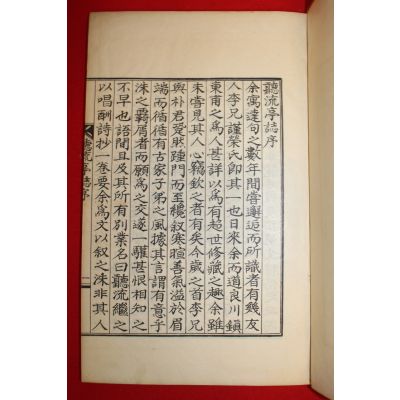 聽流亭誌序
余寓達句之數年間嘗邂逅而所識者有幾友
人李兄謹榮氏卽其一也日來余而道良川鎭
東甫之爲人甚詳以爲有超世修藏之趣余雖
未嘗見其人心竊欽之者有矣今歲之首李兄
與朴君斐然踵門而至穩叙寒暄善氣溢於眉
端而循循有古家子弟之風據其言謂有意乎
洙之覇屑者而願爲之交遂一驩甚恨相知之
不早也語間且及其所有別業名曰聽流繼之
以唱酬詩抄一卷要余爲文以叙之洙非其人
聽流亭誌序